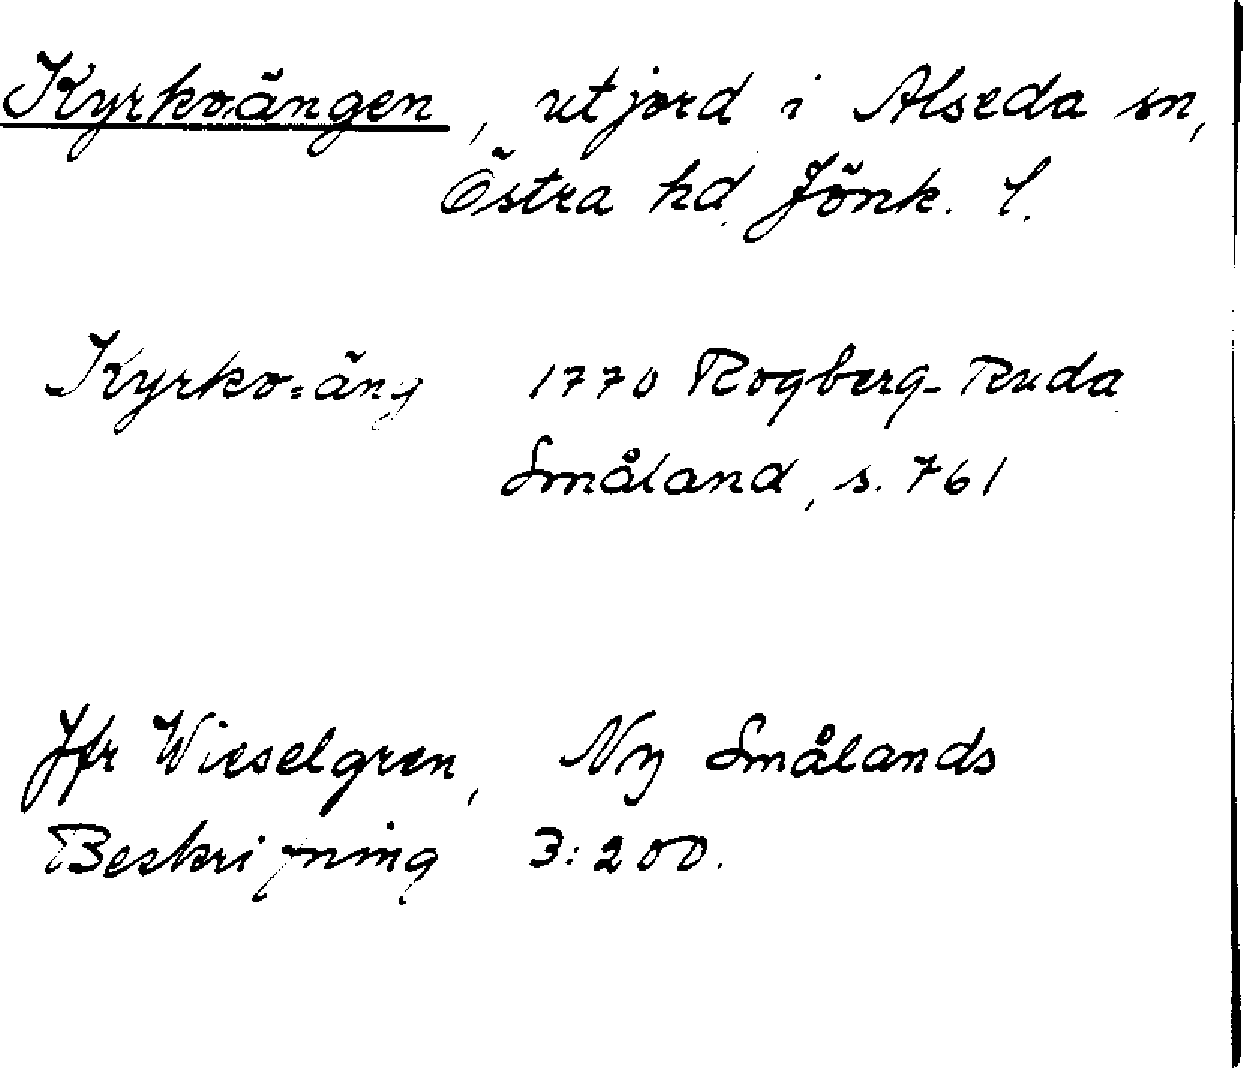 Kyrkoängen, utjord i Alseda sn,
Östra hd. Jönk. l.
Kyrko=äng 1770 Rogberg-Ruda
Småland, s. 761
Jfr Wieselgren, Ny Smålands
Beskrifning 3:200.